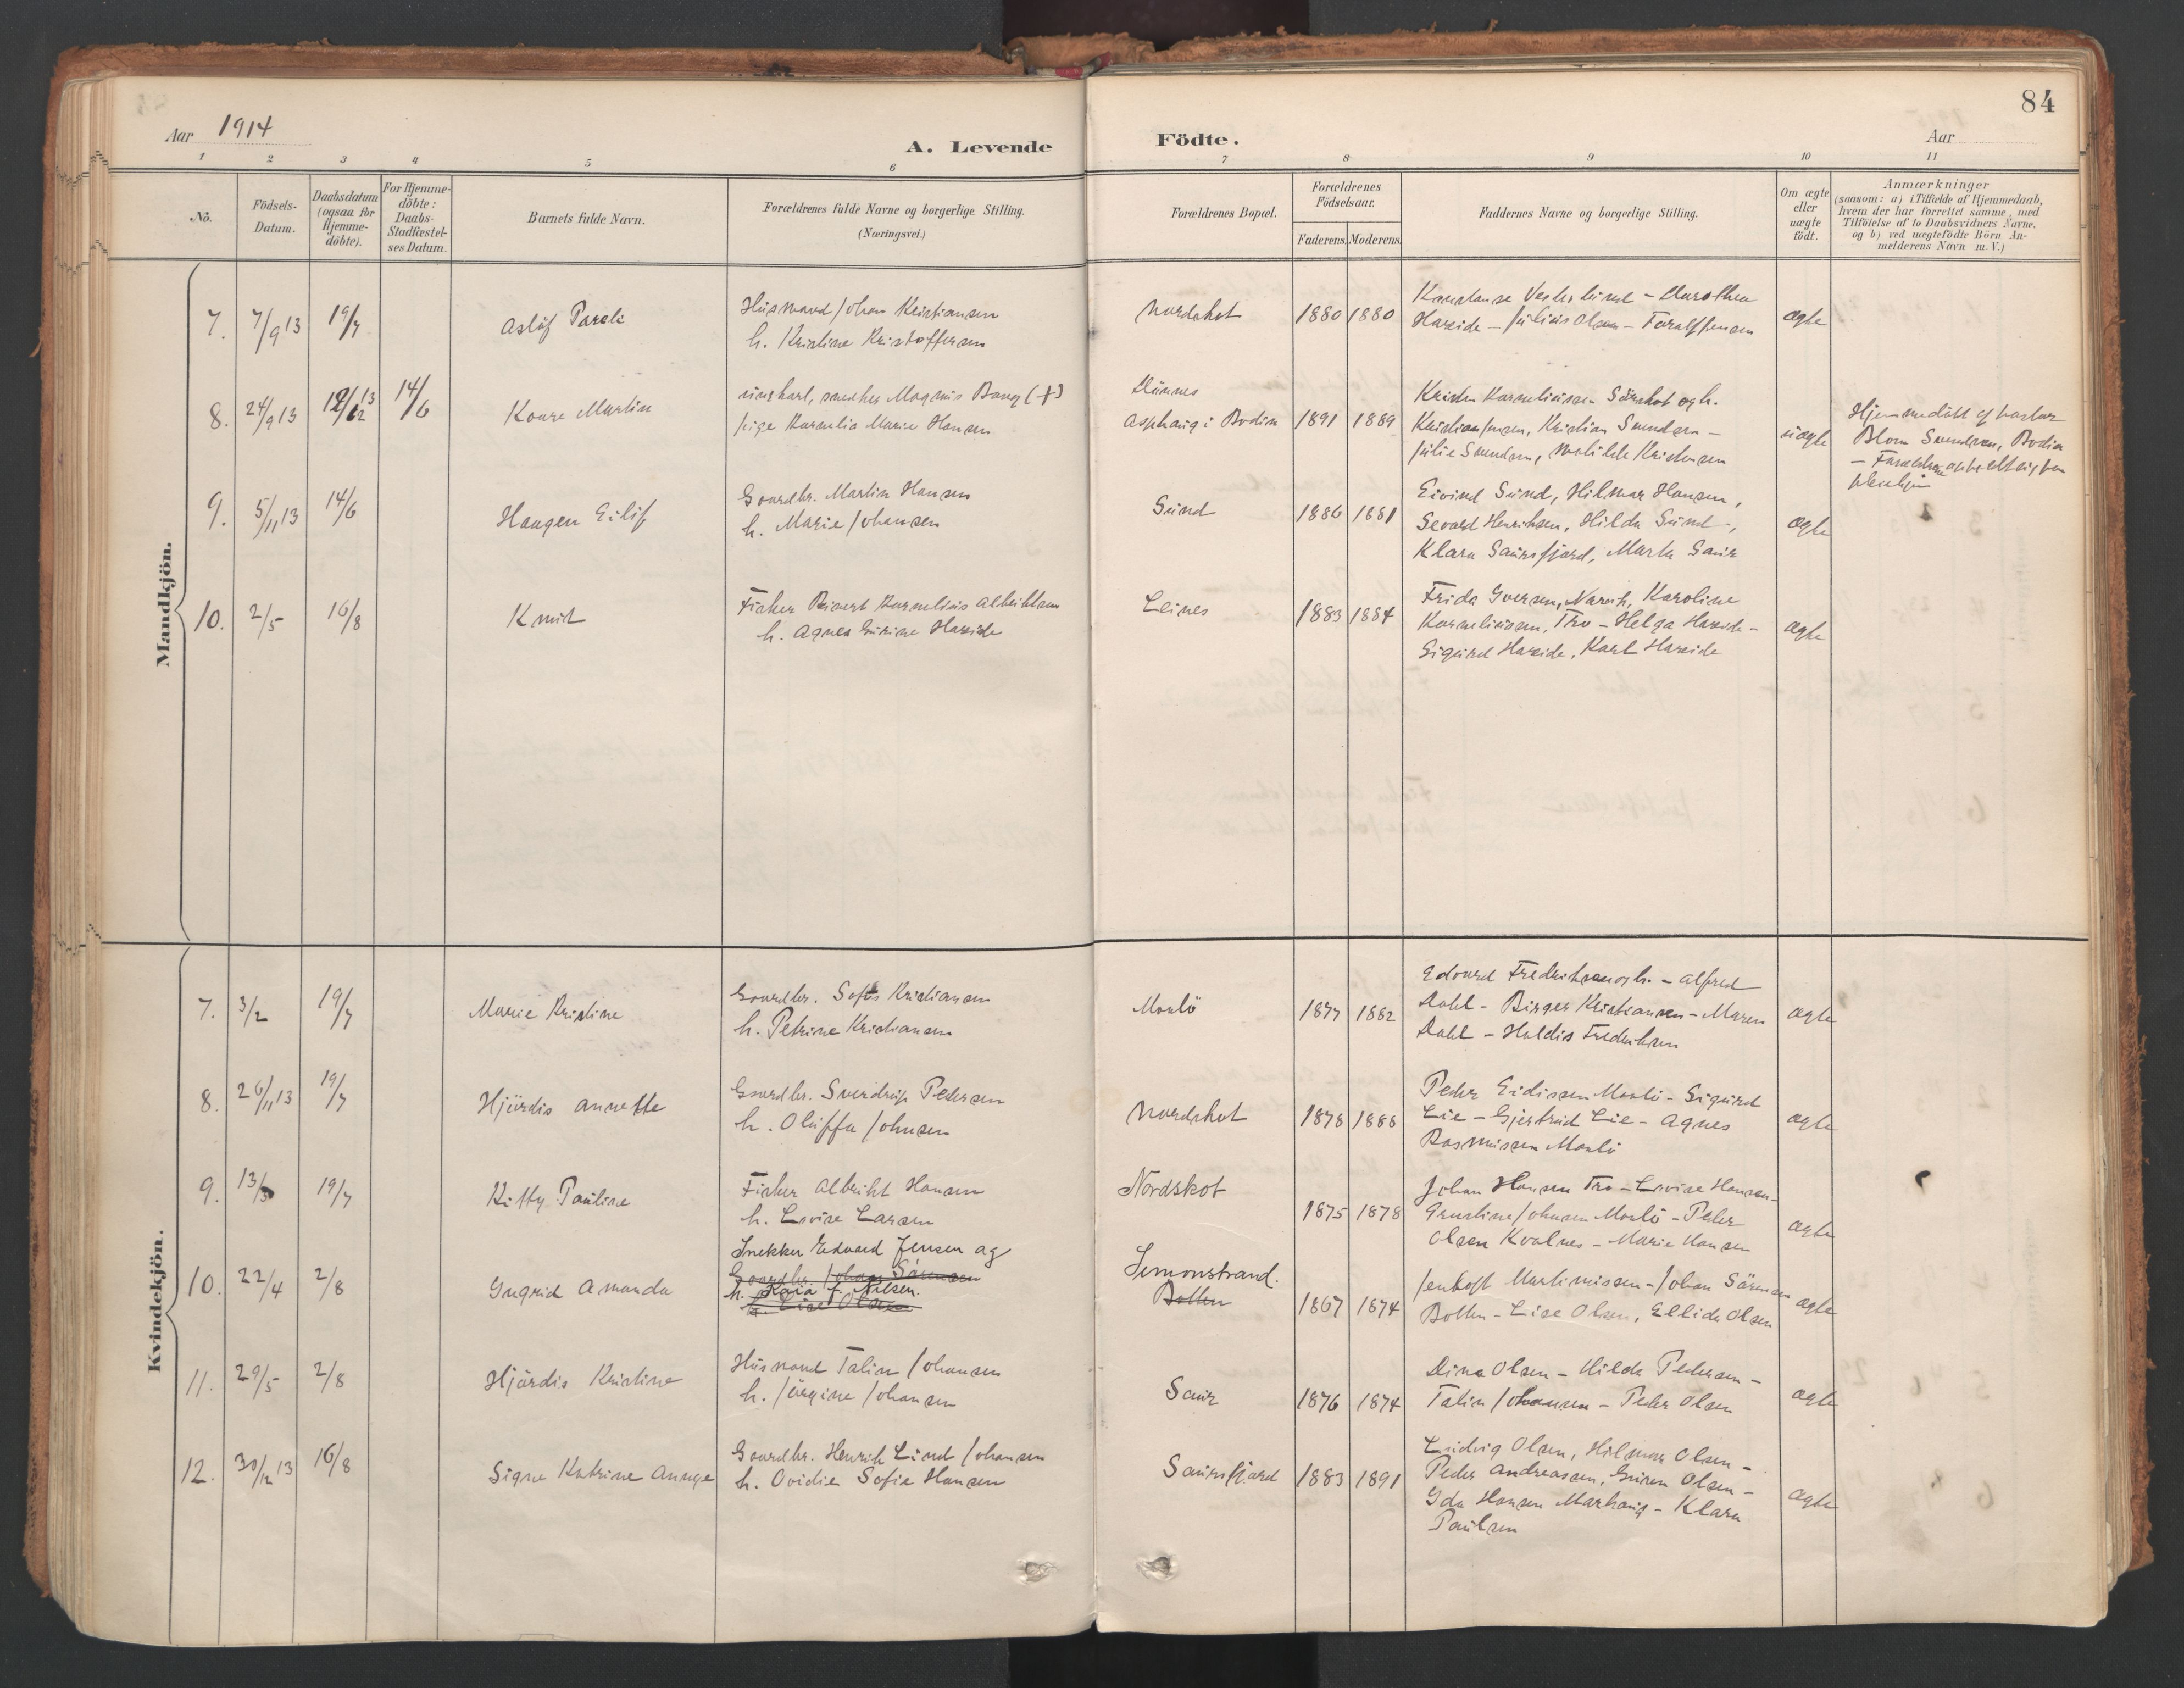 84
Aar 1914
A. Levende Födte.
Aar
1 2 3 4 5 6 7 8 9 10 11
Nô.
Födsels-Datum.
Daabsdatum (ogsaa for Hjemme-döbte).
For Hjemme-döbte: Daabs-Stadfæstel-ses Datum.
Barnets fulde Navn.
Forældrenes fulde Navne og borgerlige Stilling.
(Næringsvei.)
Forældrenes Bopæl.
Forældrenes Födselsaar.
Faderens. Moderens.
Faddernes Navne og borgerlige Stilling.
Om ægte eller uægte födt.
Anmærkninger
(saasom: a) i Tilfælde af Hjemmedaab,
hvem der har forrettet samme, med
Tilföielse af to Daabsvidners Navne.
og b) ved uægtefödte Börn An-
melderens Navn m.V.)
Mandkjön.
7. 7/9 13 19/7 Aslöf Pareli
Husmand Johan Kristiansen
h. Kristine Kristoffersen
Nordskot 1880 1880
Konstanse Vesterlund - Dorothea
Hareide - Julius Olsen - Toralf Jensen
ægte
8. 24/9 13 14/6 Kaare Martin
ungkarl, snedker Magnus Bang (+)
pige Kornelia Marie Hansen
Dünnes
Asphaug i Bodin 1891 1889
Kristen Korneliussen Sörskot og h.
Kristian Jensen, Kristian Svendsen -
Julie Svendsen, Matilde Kristensen
uægte
Hjemmedöbt af pastor
Blom Svendsen, Bodin
9. 5/11 13 14/6 Haagen Eilif
Gaardbr. Martin Hansen
h. Marie Johansen
Sund 1886 1881
Eivind Sund, Hilmar Hansen,
Sevard Henriksen, Hilda Sund -,
Klara Saursfjord, Marta Saur
ægte
10. 2/5 16/8 Knut
Fisker Reinert Kornelius Albriktsen
h. Agnes Gurine Hareide
Leines 1883 1884
Frida Iversen, Karoline
Korneliussen, Tro - Helga Hareide -
Sigurd Hareide, Karl Hareide
ægte
Kvindekjön.
7. 3/2 19/7 Marie Kristine
Gaardbr. Sofus Kristiansen
h. Petrine Kristiansen
Manlö 1877 1882
Edvard Fredriksen og h. - Alfred
Dahl - Birger Kristiansen - Maren
Dahl - Haldis Fredriksen
ægte
8. 26/11 13 19/7 Hjördis Annette
Gaardbr. Sverdrup Pedersen
h. Oluffa Johnsen
Nordskot 1878 1888
Peder Eidissen Manlö - Sigurd
Lie - Gjertrud Lie - Agnes
Rasmussen Manlö
ægte
9. 13/3 19/7 Kitty Pauline
Fisker Albrikt Hansen
h. Lovise Larsen
Nordskot 1875 1878
Johan Hansen Tro - Lovise Hansen -
Ernstine Johnsen Manlö - Peder
Olsen Kvalnes - Marie Hansen
ægte
10. 22/4 2/8 Ingrid Amanda
Snekker Edvard Jensen og
Gaardbr. Johan Sörensen
h. Kaia f. Nilsen.
h. Lise Olsen
Simonstrand.
Botten 1867 1874
Jentoft Martinussen - Johan Sörensen
Botten - Lise Olsen, Ellida Olsen
ægte
11. 29/5 2/8 Hjördis Kristine
Husmand Talin Johansen
h. Jörgine Johansen
Saur 1876 1874
Dina Olsen - Hilda Pedersen -
Talin Johansen - Peder Olsen
ægte
12. 30/12 13 16/8 Signe Katrine Annye
Gaardbr. Henrik Lind Johansen
h. Ovidie Sofie Hansen
Saursfjord 1883 1891
Ludvig Olsen, Hilmar Olsen -
Peder Andreassen, Guren Olsen -
Ida Hansen Marhaug - Klara
Paulsen
ægte